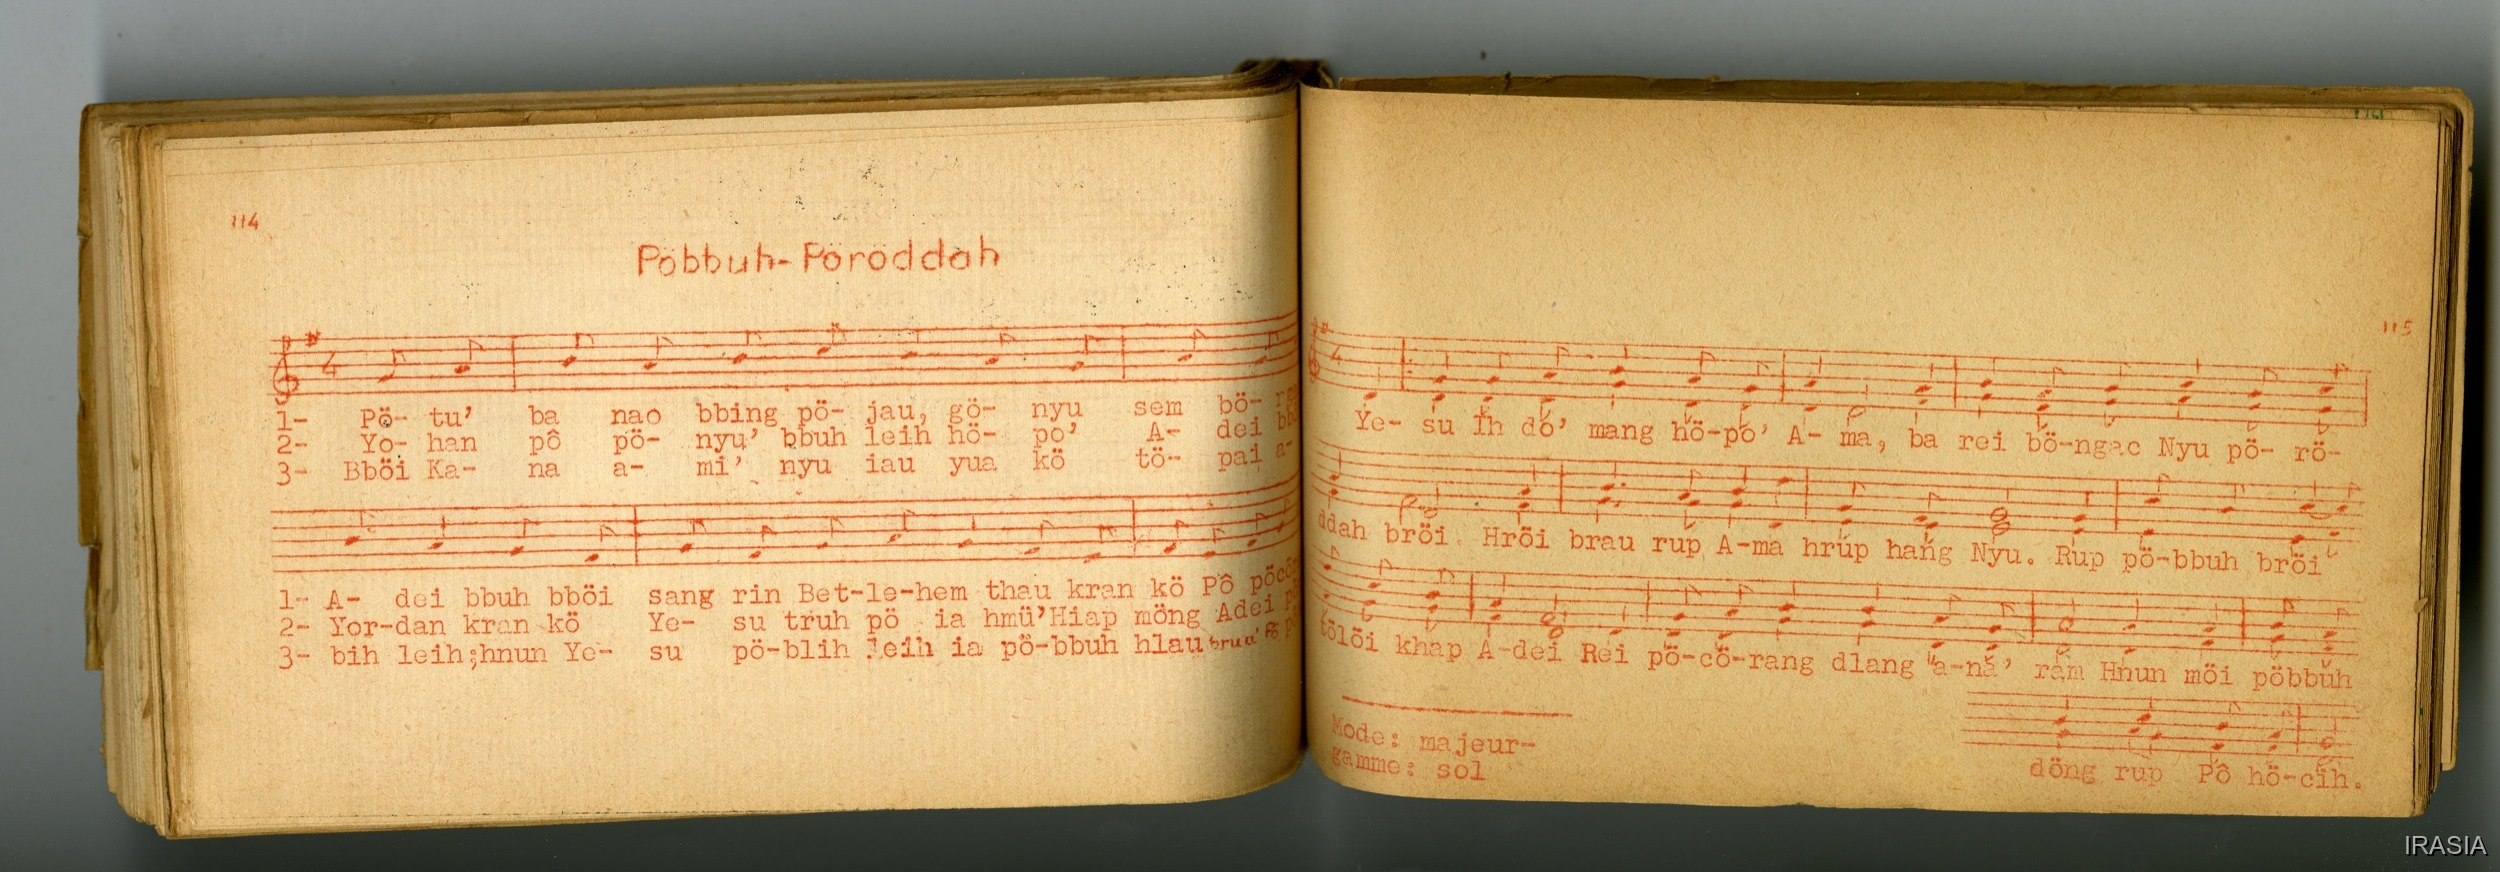 114
Pöbbuh-Föröddah
4
1- Pö- tu' ba nao bbing pö- jau, gö- nyu sem bö-
2- Yo- han pô pö- nyu' bbuh leih hö- po' A- dei
3- Bböi Ka- na a- mi' nyu iau yua kö tö- pai a-
1- A- dei bbuh bböi sang rin Bet-le-hem thau kran kö Pô
2- Yor-dan kran kö Ye- su truh pö ia hmü'Hiap möng Adei
3- bih leih;hnun Ye- su pö-blih leih ia pö-bbuh hlau bruu' Pô
115
4
Ye- su Ih dô' mang hö-pô' A- ma, ba rei bö-ngac Nyu pö- rö-
ddah bröi. Hröi brau rup A-ma hrup hang Nyu. Rup pö-bbuh bröi
tölöi khap A-dei Rei pö-cö-rang dlang a-na' ram Hnun möi pöbbuh
döng rup Pô hö-cih.
Mode: majeur-
gamme: sol
IRASIA